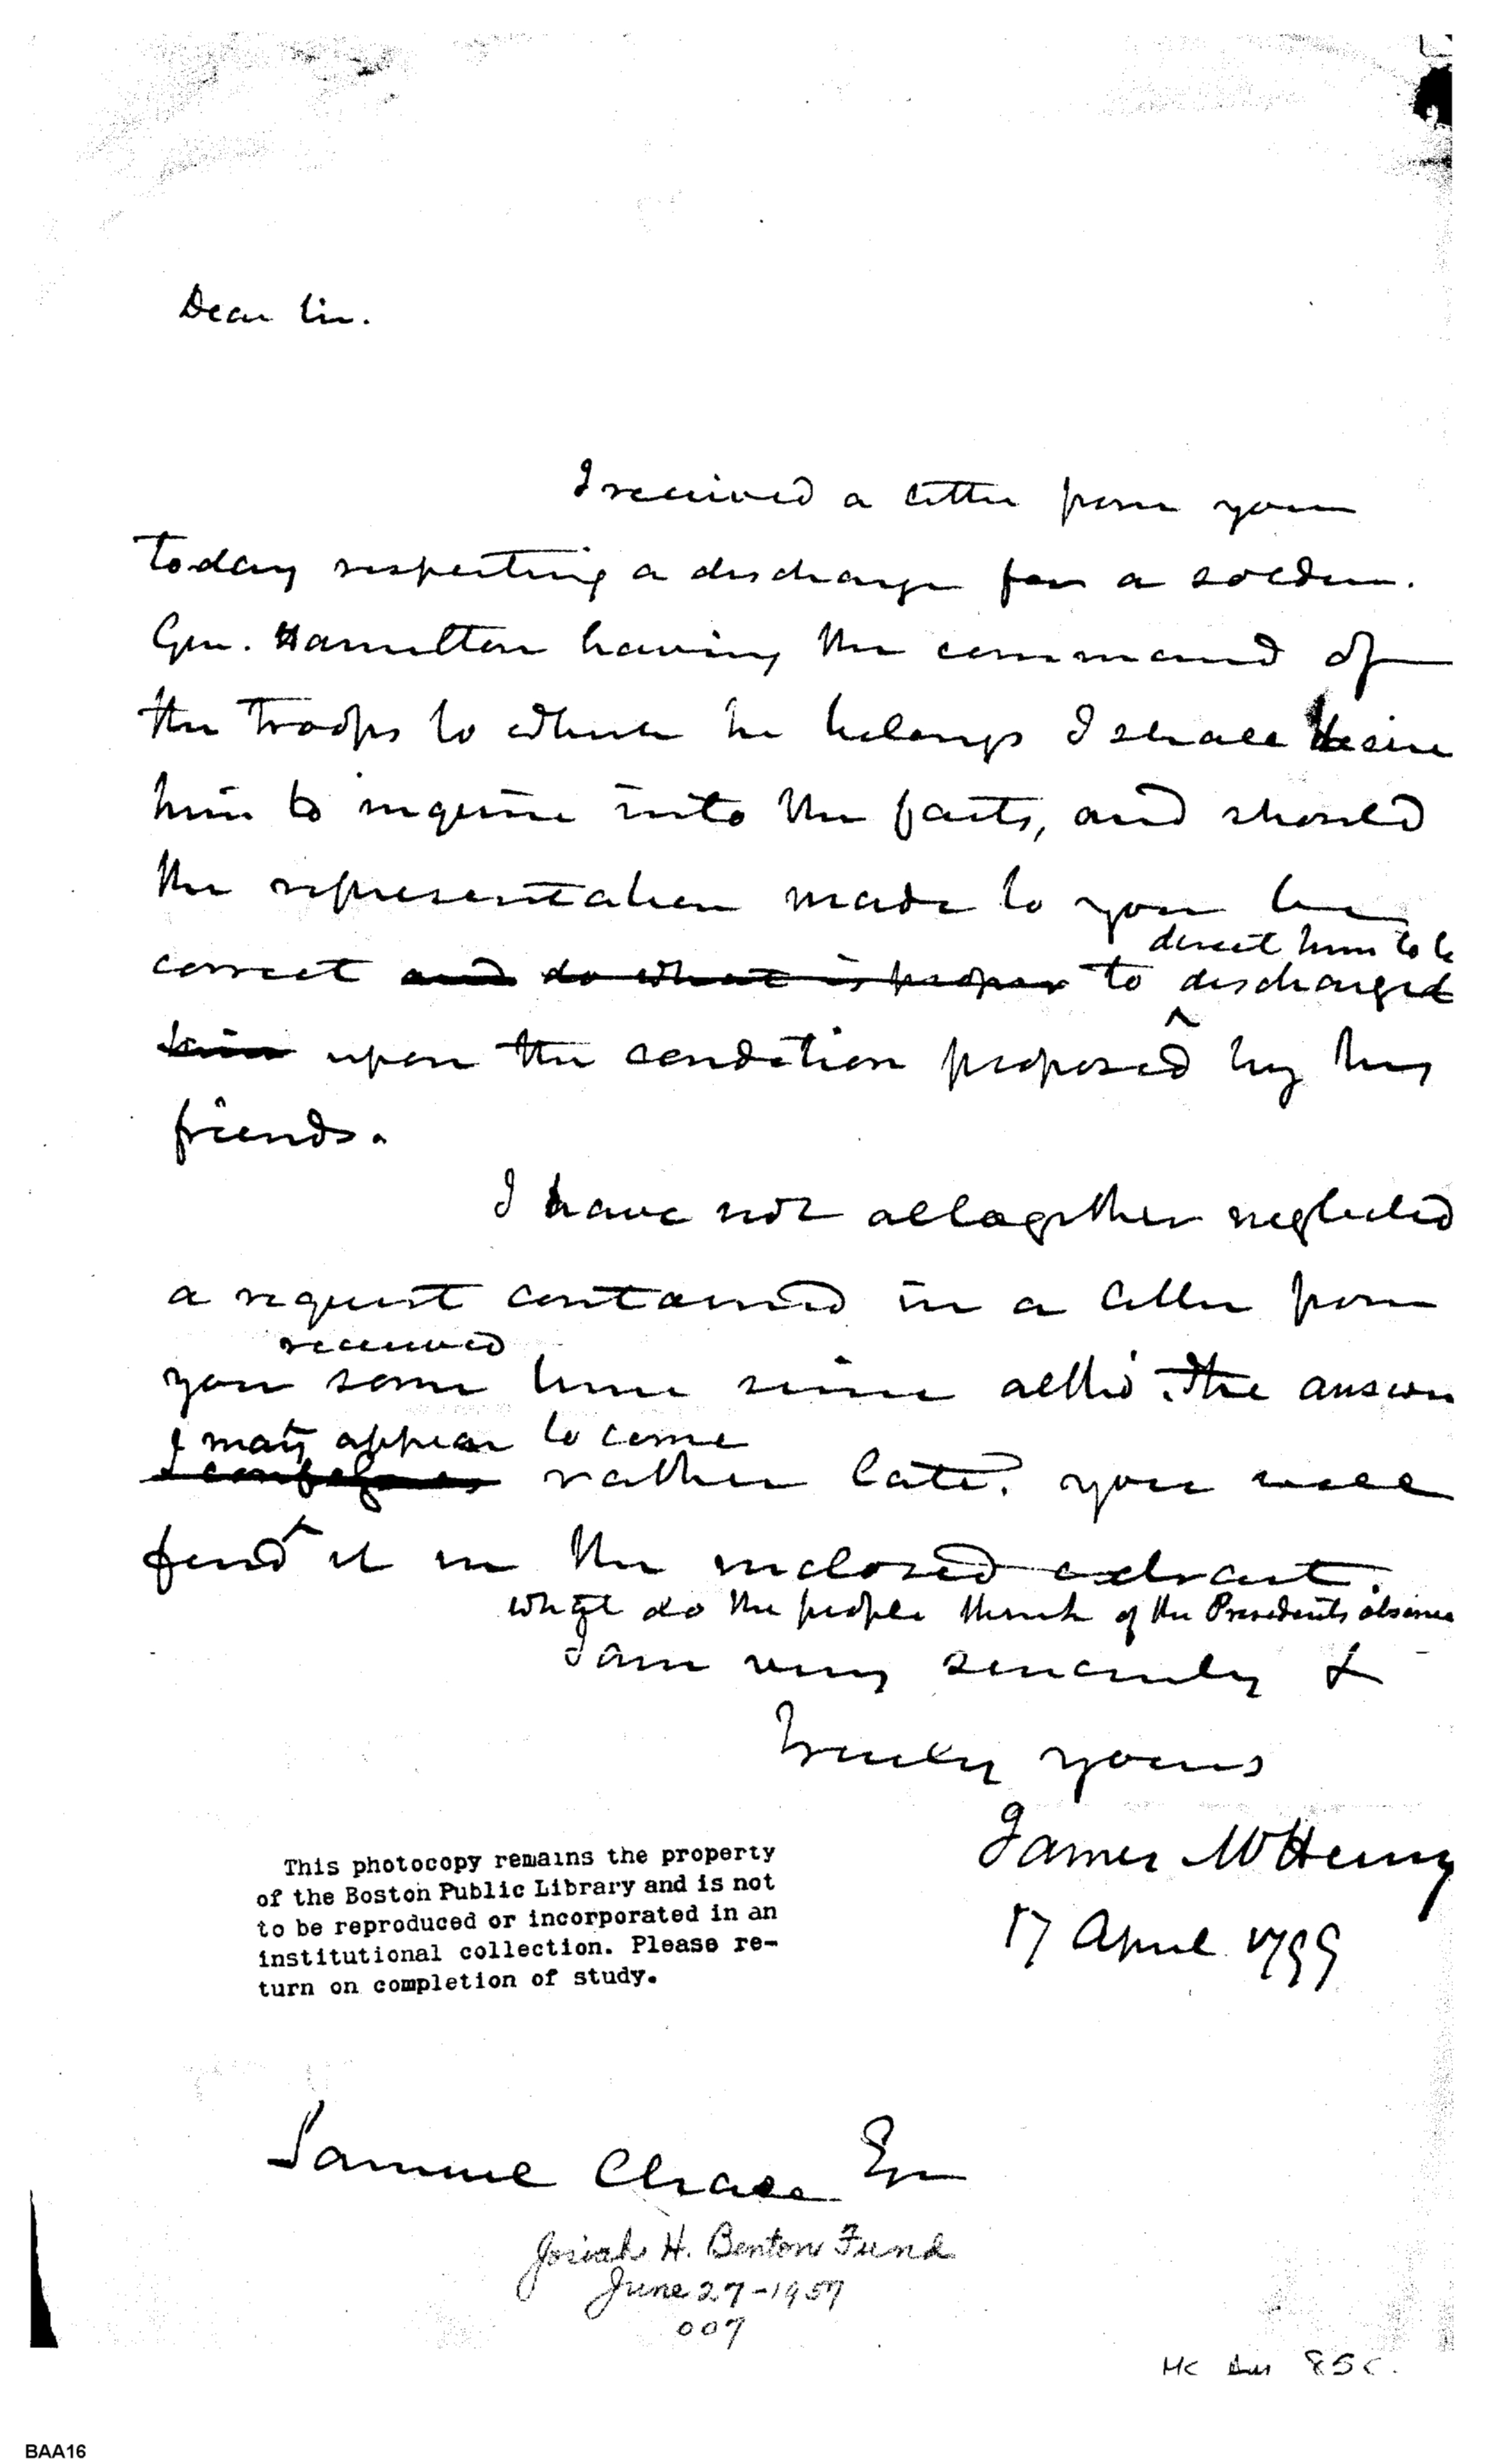 Dear Sir.
I received a letter from you
today respecting a discharge for a soldier.
Gen. Hamilton having the command of
the troops to which he belongs I shall desire
him to inquire into the facts, and should
the representation made to you be
direct him to be
correct and do what is proper to discharged
him upon the condition proposed by his
friends.
I have not altogether neglected
a request contained in a letter from
received
you some time since altho' the answer
I may appear to come
rather late. you will
find it in the inclosed extract.
what do the people think of the Presidents absence
I am very sincerely &
truly yours
James McHenry
17 April 1799
This photocopy remains the property
of the Boston Public Library and is not
to be reproduced or incorporated in an
institutional collection. Please re-
turn on completion of study.
Samuel Chase Esq
Josiah H. Benton Fund
June 27-1957
007
85c.
BAA16